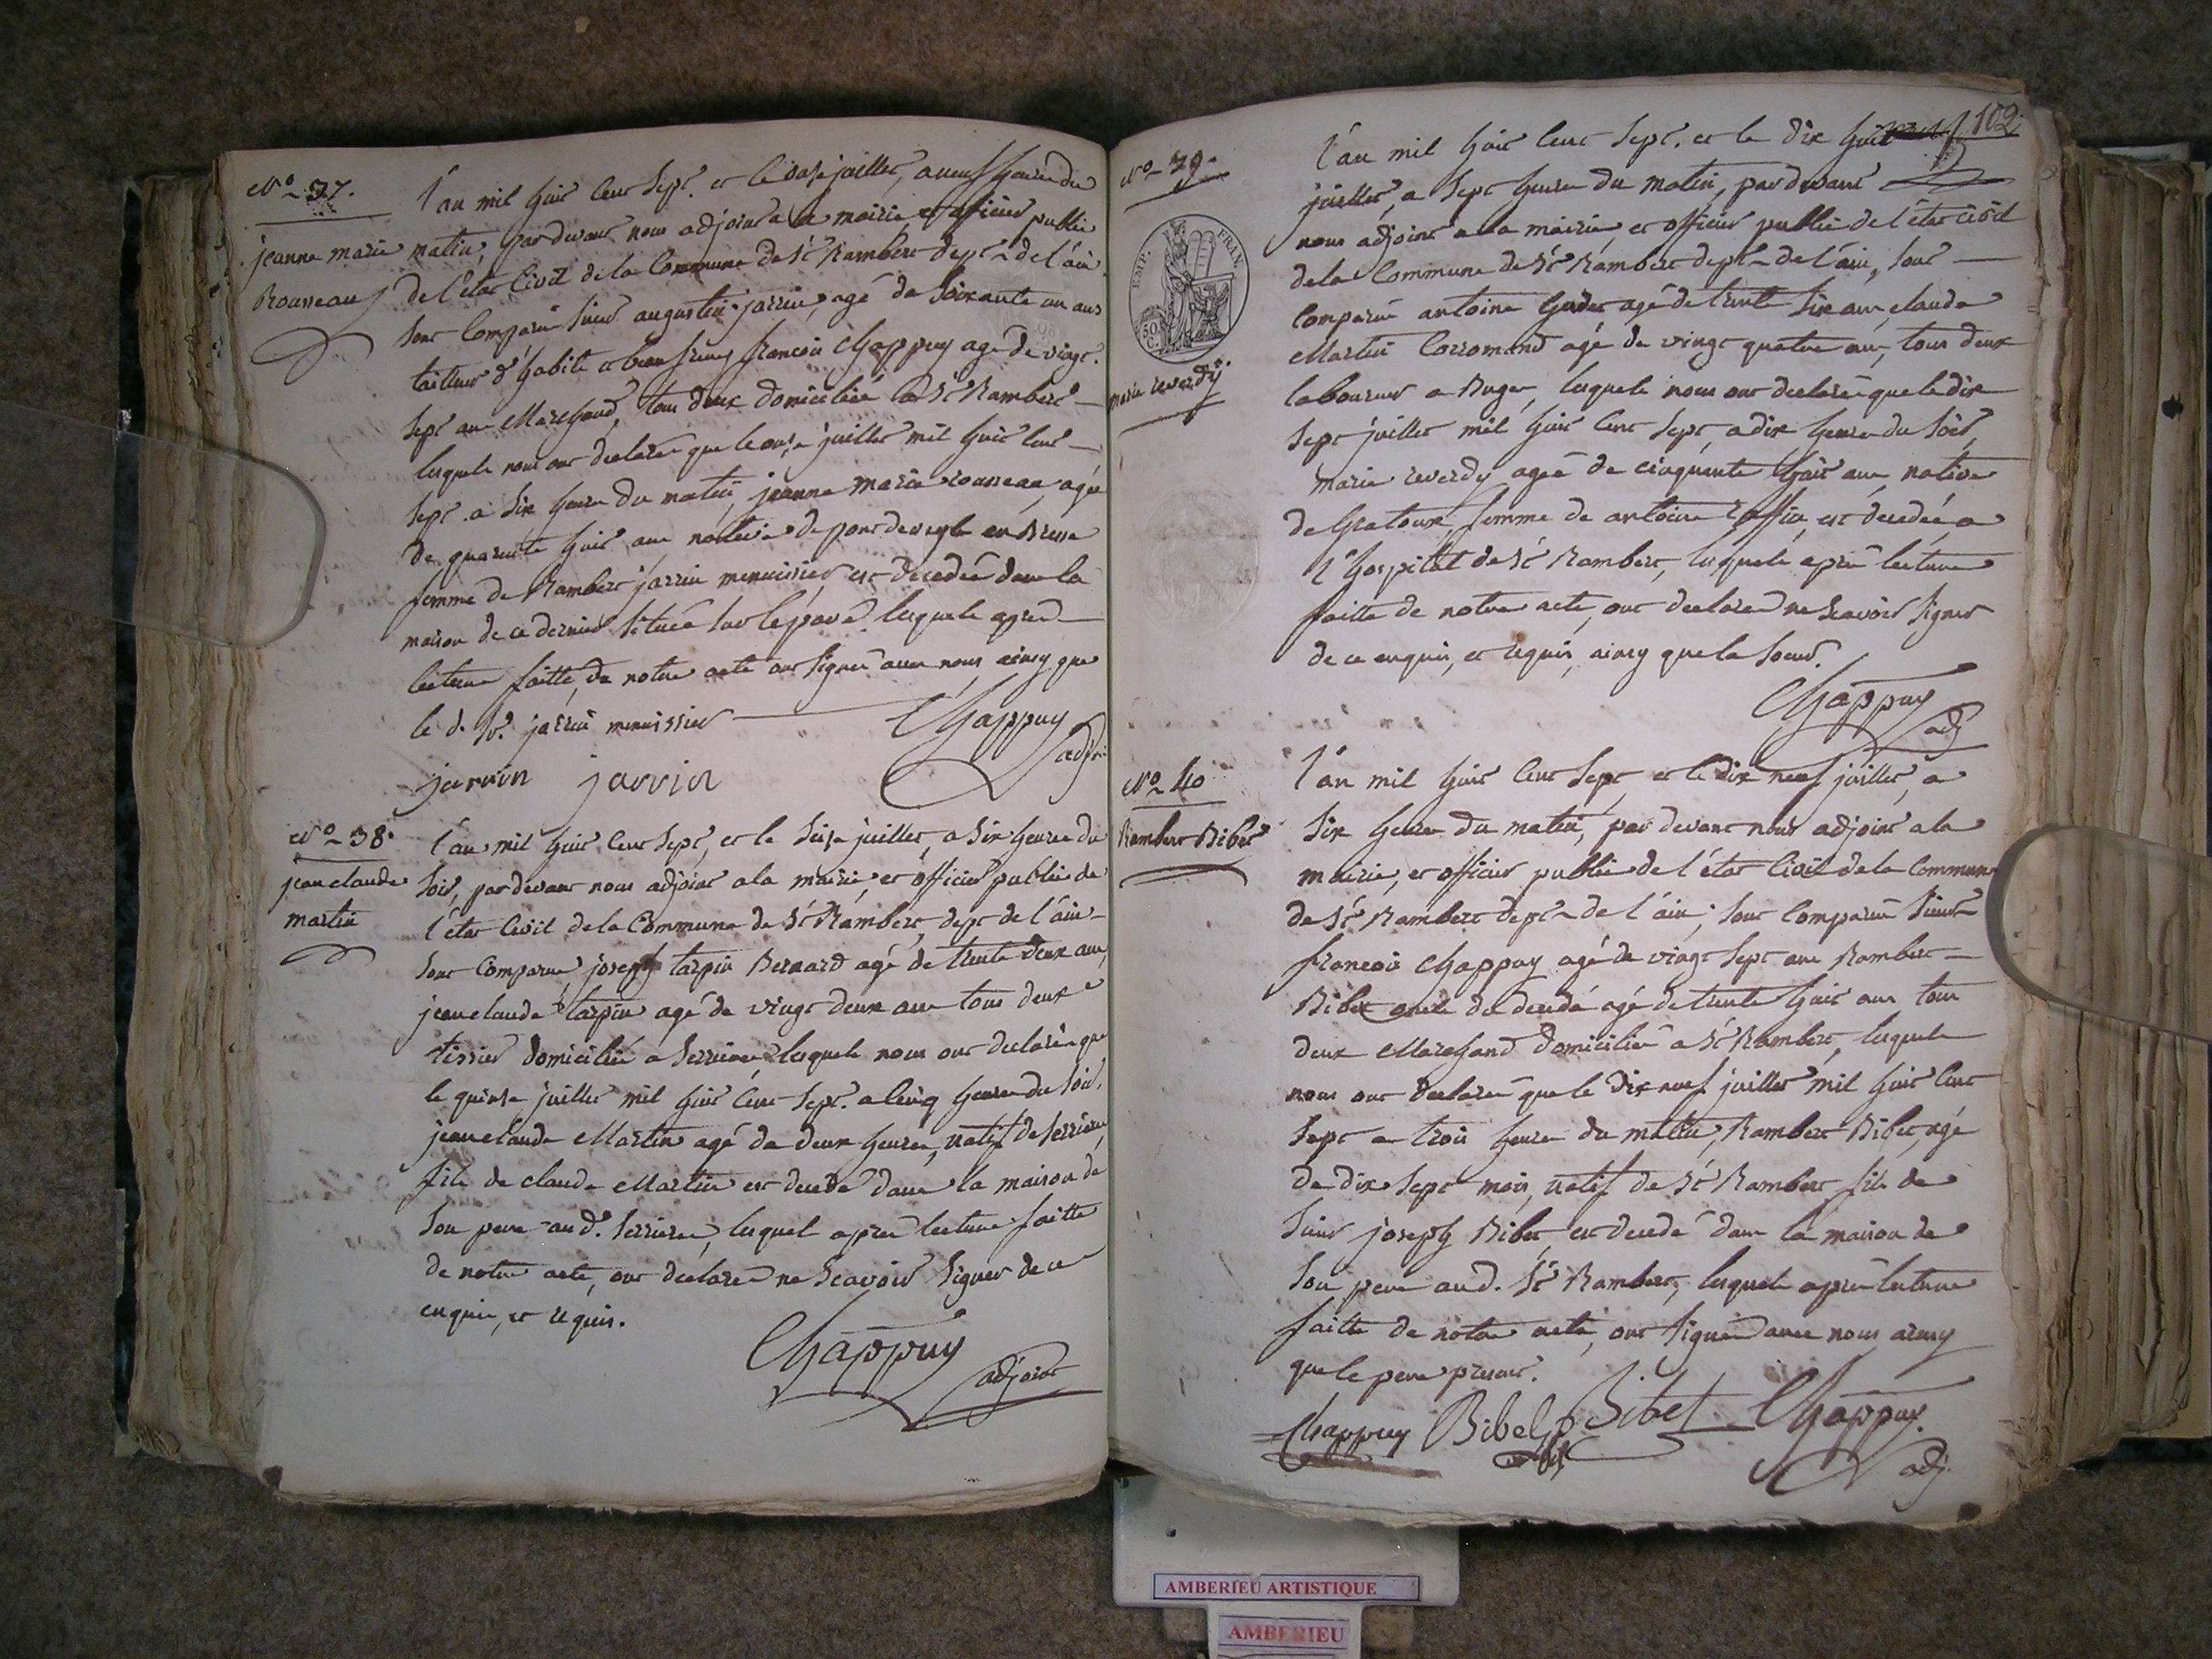 N.o 37.
jeanne marie
Rousseau
L'an mil huit Cent Sept. et le onze juillet, a neuf heures du
matin, par devant nous adjoint a la mairie et officier public
de l'état Civil de la Commune de St Rambert dept. de l'ain
Sont Comparus Sieur augustin jarrin, agé de Soixante un ans
tailleur d'habits et beau frere, francois Chappuy agé de vingt
Sept ans Marchand, tous deux domiciliés a St Rambert
lesquels nous ont declarés que le onze juillet mil huit Cent
Sept a Six heures du matin, jeanne marie rousseau, agée
de quarante huit ans native de pont de vesle en Bresse
femme de Rambert jarrin menuisier est decedée dans la
maison de ce dernier Situeé Sur le pavé. lesquels apres
lecture faitte, de notre acte ont Signés avec nous, ainsy que
le d. Sr. jarrin menuissier
Chappuy
adjoi
jarrin jarrin
N.o 38.
jean claude
martin
L'an mil huit Cent Sept, et le Seize juillet, a Six heures du
Soir, par devant nous adjoint a la mairie, et officier public de
l'état Civil de la Commune de St Rambert, dept. de l'ain
Sont Comparus joseph tarpin Bernard agé de trente deux ans,
jean claude tarpin agé de vingt deux ans tous deux
tissier domiciliés a Serrieres, lesquels nous ont declarés que
le quinze juillet mil huit Cent Sept. a Cinq heures du Soir,
jean claude Martin agé de deux heures, natif de Serrieres,
fils de claude Martin est decedé dans la maison de
Son pere au d. Serrieres, lesquels apres lecture faitte
de notre acte, ont declarés ne Scavoir Signer de ce
enquis, et requis.
Chappuy
adjoint
102
N.o 39.
EMP. FRAN.
50 C.
marie reverdy.
L'an mil huit Cent Sept. et le dix huit
juillet, a Sept heures du matin, par devant
nous adjoint a la mairie, et officier public de l'état civil
de la Commune de St Rambert dept. de l'ain, Sont
Comparus antoine agé de trente Six ans, claude
Martin Corromand agé de vingt quatre ans, tous deux
laboureur a , lesquels nous ont declarés que le dix
Sept juillet mil huit Cent Sept, a dix heures du Soir,
marie reverdy ageé de cinquante huit ans, native
de Gratoux, femme de antoine est decedeé, a
l'hospital de St Rambert, lesquels apres lecture
faitte de notre acte, ont declarés ne Scavoir Signer
de ce enquis, et requis, ainsy que la Soeur.
Chappuy
adj
N.o 40
Rambert Bibet
L'an mil huit Cent Sept, et le dix neuf juillet, a
Six heures du matin, par devant nous adjoint a la
mairie, et officier public de l'état Civil de la Commune
de St Rambert dept. de l'ain, Sont Comparus Sieur
francois Chappuy agé de vingt Sept ans Rambert
Bibet oncle du decedé agé de trente huit ans tous
deux Marchand domiciliés a St Rambert, lesquels
nous ont declarés que le dix neuf juillet mil huit Cent
Sept a trois heures du matin, Rambert Bibet, agé
de dix Sept mois, natif de St Rambert fils de
Sieur joseph Bibet est decedé dans la maison de
Son pere au d. St Rambert, lesquels apres lecture
faitte de notre acte, ont Signés avec nous ainsy
que le pere present.
Chappuy Bibet Bibet Chappuy
adj.
AMBERIEU ARTISTIQUE
AMBERIEU